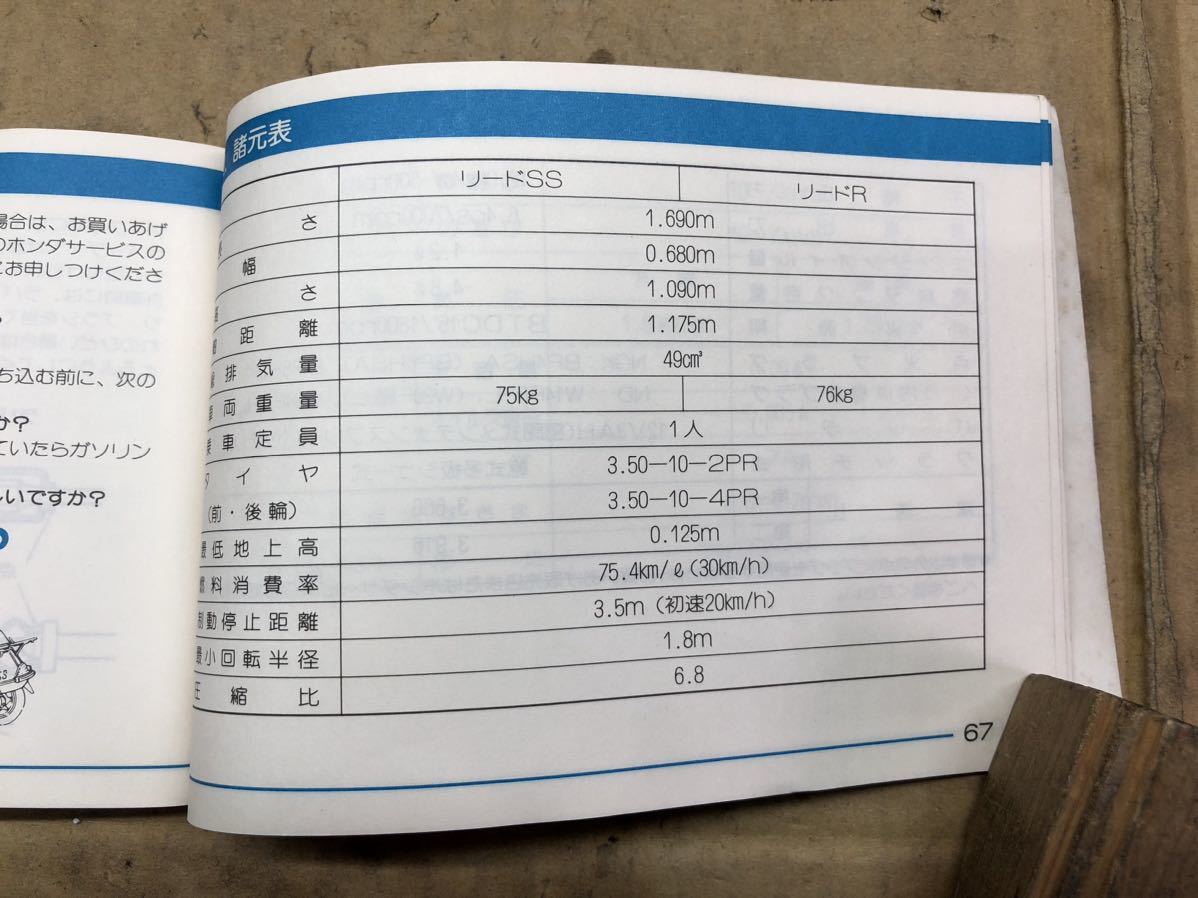 場合は、お買いあげ
のホンダサービスの
にお申しつけくださ
ち込む前に、次の
か?
ていたらガソリン
しいですか?
諸元表
リードSS リードR
さ 1.690m
幅 0.680m
さ 1.090m
距離 1.175m
排気量 49cm³
車両重量 75kg 76kg
乗車定員 1人
タイヤ 3.50-10-2PR
(前・後輪) 3.50-10-4PR
最低地上高 0.125m
燃料消費率 75.4km/ℓ(30km/h)
制動停止距離 3.5m(初速20km/h)
最小回転半径 1.8m
圧縮比 6.8
67